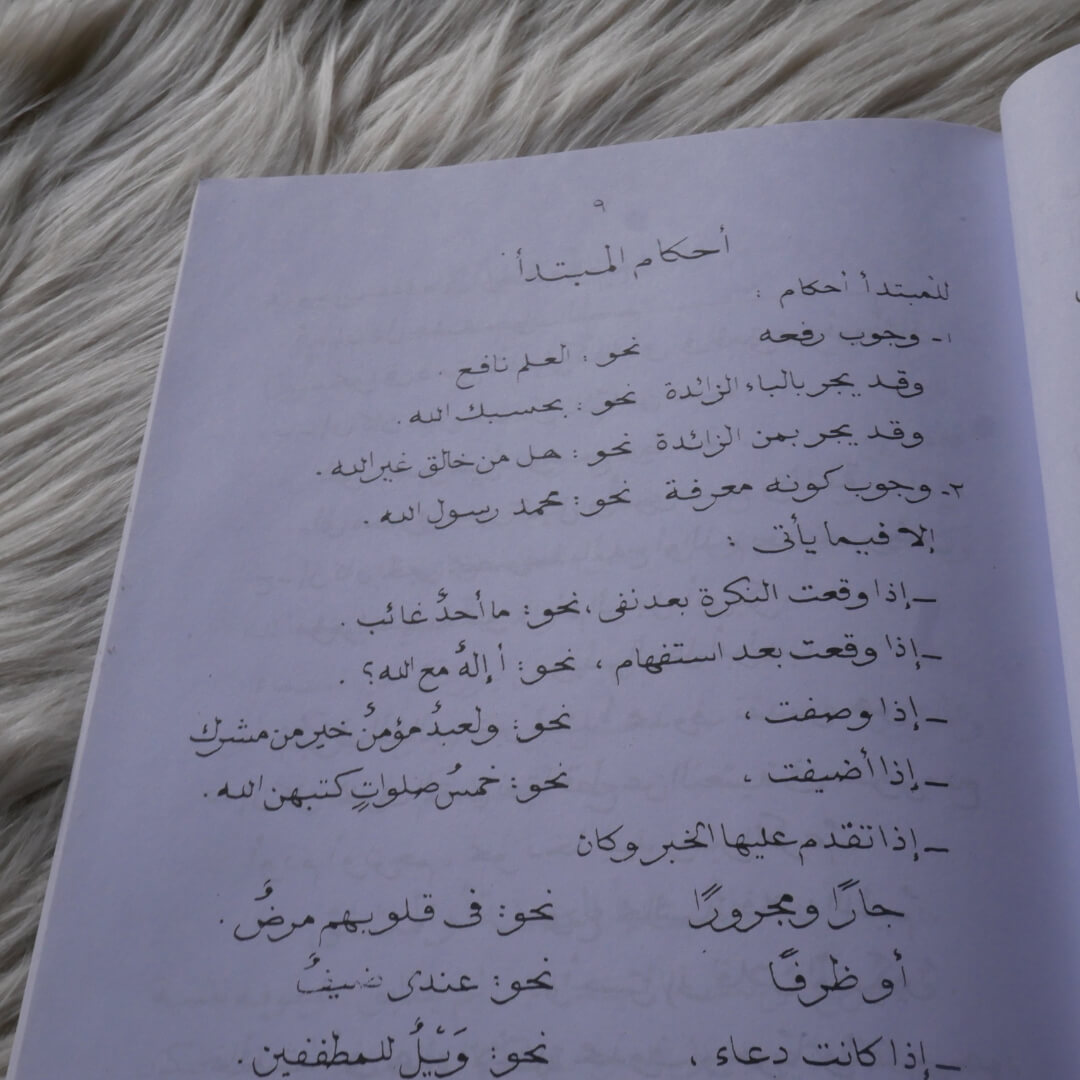 ٩
أحكام المبتدأ
للمبتدأ أحكام :
١- وجوب رفعه نحو : العلم نافع .
وقد يجر بالباء الزائدة نحو : بحسبك الله .
وقد يجر بمن الزائدة نحو : هل من خالق غير الله .
٢- وجوب كونه معرفة نحو : محمد رسول الله .
إلا فيما يأتى :
- إذا وقعت النكرة بعد نفى ، نحو : ما أحدٌ غائب .
- إذا وقعت بعد استفهام ، نحو : أ إلهٌ مع الله ؟ .
- إذا وصفت ، نحو : ولعبدٌ مؤمنٌ خير من مشرك
- إذا أضيفت ، نحو : خمسُ صلواتٍ كتبهن الله .
- إذا تقدم عليها الخبر وكان
جارًا ومجرورًا نحو : فى قلوبهم مرضٌ .
أو ظرفًا نحو : عندى ضيفٌ
- إذا كانت دعاء ، نحو : وَيْلٌ للمطففين .